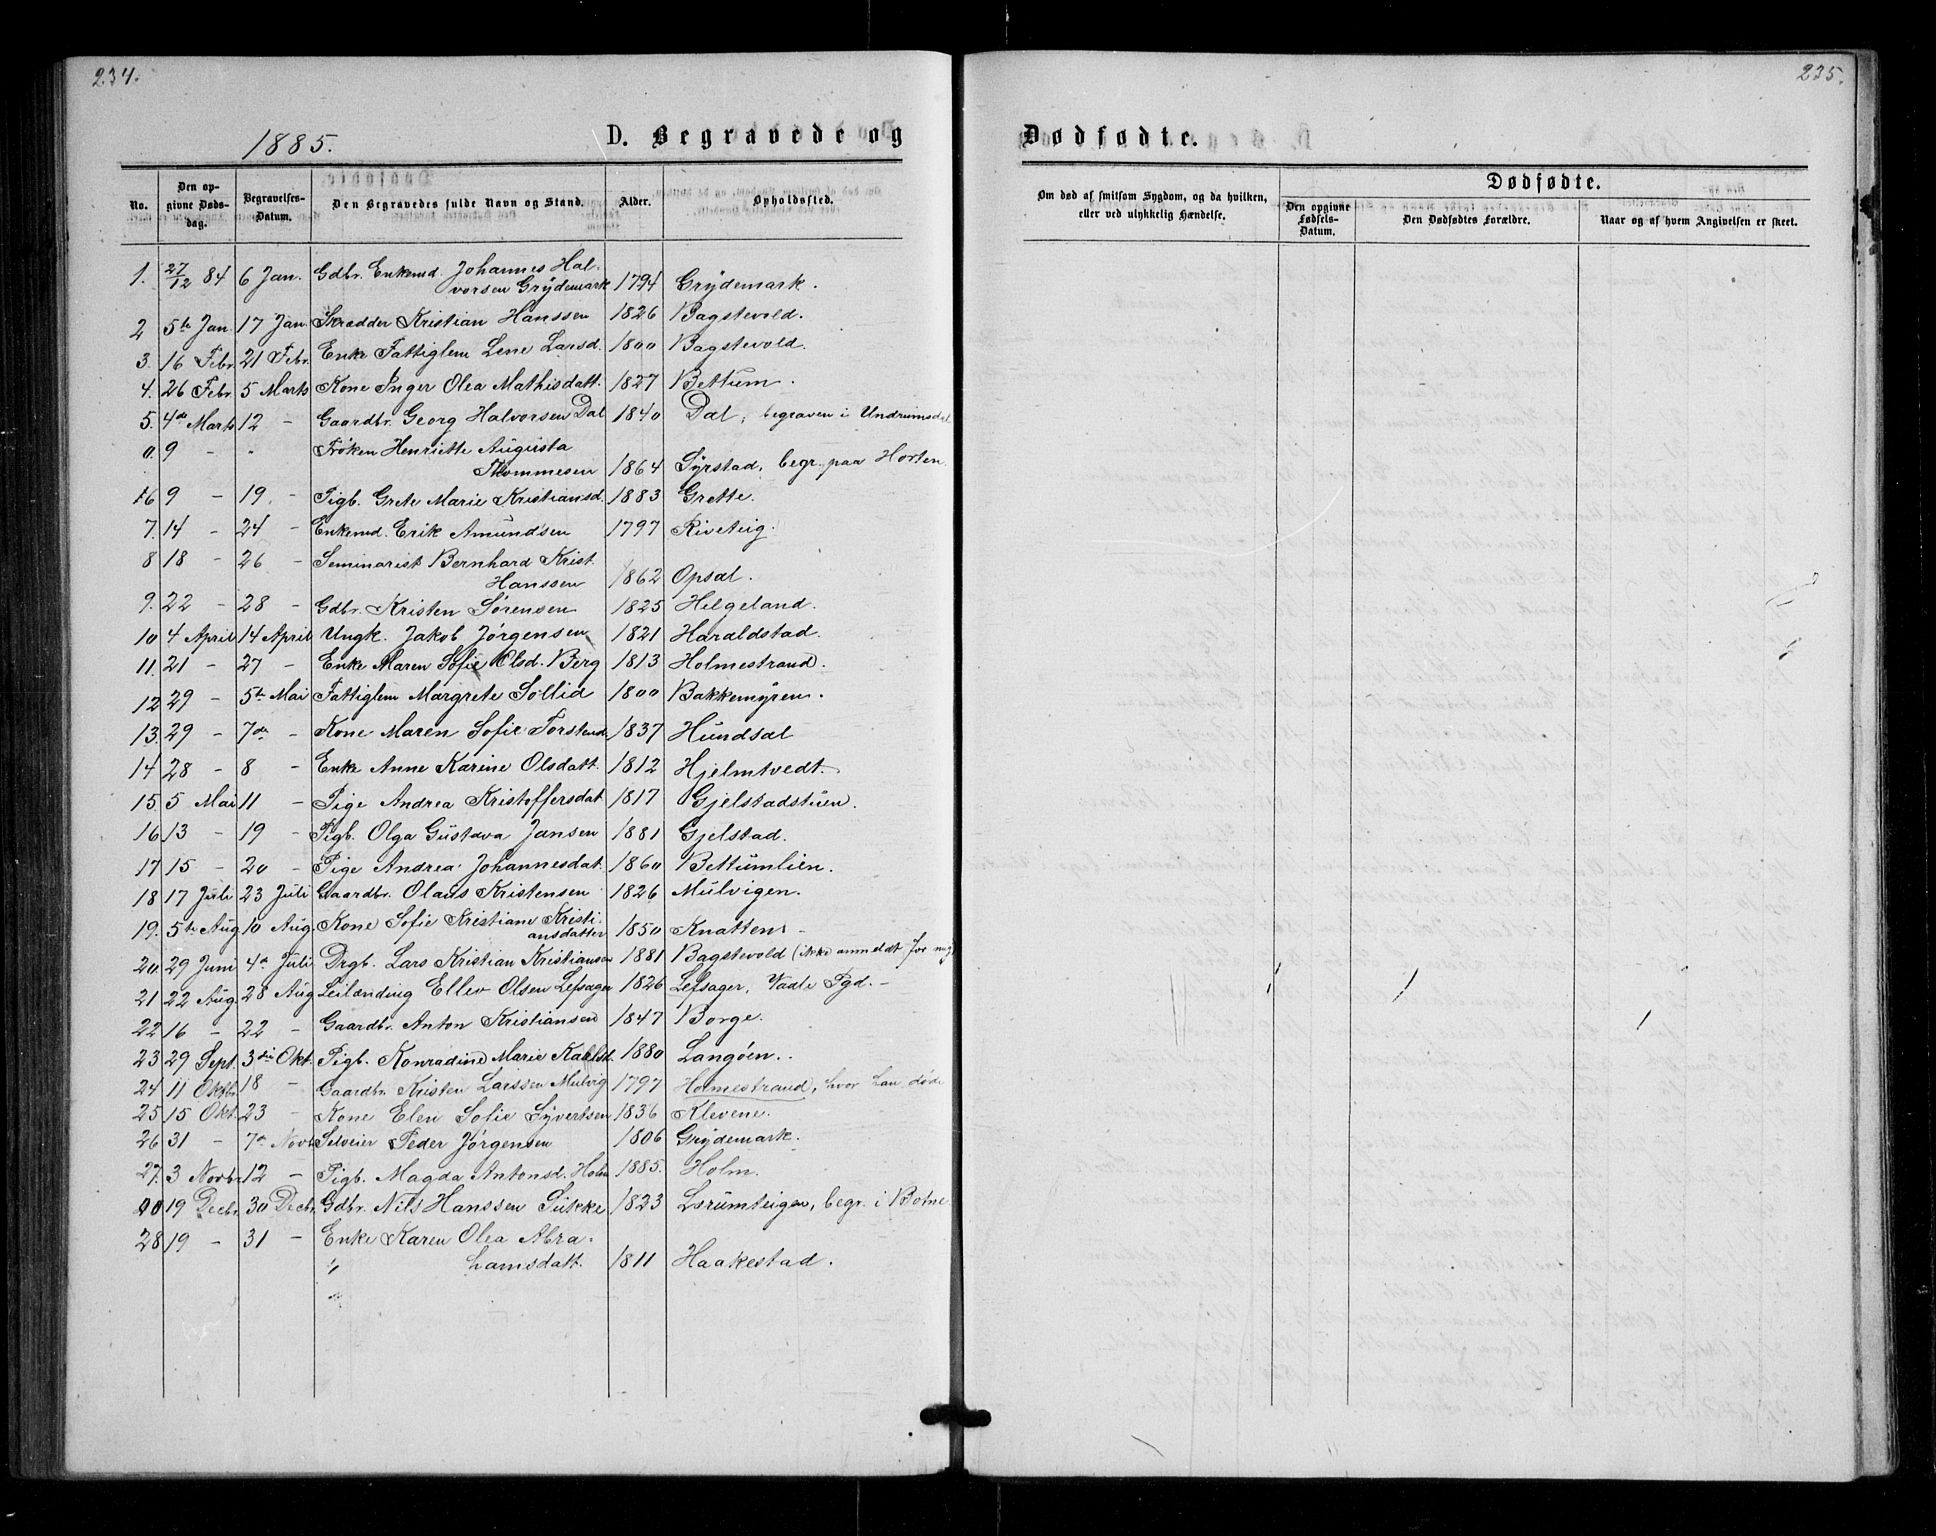 234.
1885.
D. Begravede og
No. Den op-givne Døds-dag. Begravelses-Datum. Den Begravedes fulde Navn og Stand. Alder. Opholdssted.
1. 27/12 84 6 Jan. Gdbr. Enkemd. Johannes Hal-
vorsen Grydemark 1794 Grydemark.
2 5te Jan. 17 Jan. Skrædder Kristian Hanssen 1826 Bagstevold.
3. 16 Febr. 21 Febr. Enke Fattiglem Lene Larsd. 1800 Bagstevold.
4. 26 Febr. 5 Marts Kone Inger Olea Mathisdatt. 1827 Bettum.
5. 4de Marts 12 - Gaardbr. Georg Halvorsen Dal 1840 Dal, begraven i Undrumsdal
0. 9 - - Frøken Henriette Augusta
Thommesen 1864 Syrstad, begr. paa Horten
6 9 - 19 - Pigb. Grete Marie Kristiansd. 1883 Grette.
7. 14 - 24 - Enkemd. Erik Amundsen 1797 Riveteig.
8 18 - 26 - Seminarist Bernhard Krist.
Hanssen 1862 Opsal.
9. 22 - 28 - Gdbr. Kristen Sørensen 1825 Helgeland.
10 4 April 14 April Ungk. Jakob Jørgensen 1821 Haraldstad.
11. 21 - 27 - Enke Maren Sofie Olsd. Berg 1813 Holmestrand.
12 29 - 5te Mai Fattiglem Margrete Sollid 1800 Bakkemyren.
13. 29 - 7de - Kone Maren Sofie Torstend. 1837 Hundsal
14 28 - 8 - Enke Anne Karine Olsdatt. 1812 Hjelmtvedt.
15. 5 Mai 11 - Pige Andrea Kristoffersdat. 1817 Gjelstadstuen.
16 13 - 19 - Pigb. Olga Gustava Jansen 1881 Gjelstad.
17 15 - 20 - Pige Andrea Johannesdat. 1860 Bettumlien.
18 17 Juli 23 Juli Gaardbr. Olaus Kristensen 1826 Mulvigen.
19. 5te Aug 10 Aug. Kone Sofie Kristiane Kristi-
ansdatter 1850 Knatten -
20 29 Juni 4de Juli Drgb. Lars Kristian Kristiansen 1881 Bagstevold (ikke anmeldt for mig)
21 22 Aug. 28 Aug Leilending Ellev Olsen Lefsager 1826 Lefsager, Vaale Pgd. -
22 16 - 22 - Gaardbr. Anton Kristiansen 1847 Borge.
23 29 Sept. 3die Okt. Pigb. Konradine Marie Karlsd. 1880 Langøen.
24 11 Oktbr. 18 - Gaardbr. Kristen Larssen Mulvig 1797 Holmestrand, hvor han døde
25 15 Okt. 23 - Kone Elen Sofie Syvertsen 1836 Klevene.
26 31 - 7de Novb. Selveier Peder Jørgensen 1806 Grydemark.
27. 3 Novbr. 12 - Pigb. Magda Antonsd. Holm 1885. Holm.
00 19 Decbr. 30 Decbr. Gdbr. Nils Hanssen Sukke 1823 Lærumteigen, begr. i Botne
28 19 - 31 - Enke Karen Olea Abra-
" hamsdatt. 1811 Haakestad.
"
235.
Dødfødte.
Om død af smitsom Sygdom, og da hvilken, eller ved ulykkelig Hændelse.
Dødfødte.
Den opgivne Fødsels-Datum. Den Dødfødtes Forældre. Naar og af hvem Angivelsen er skeet.